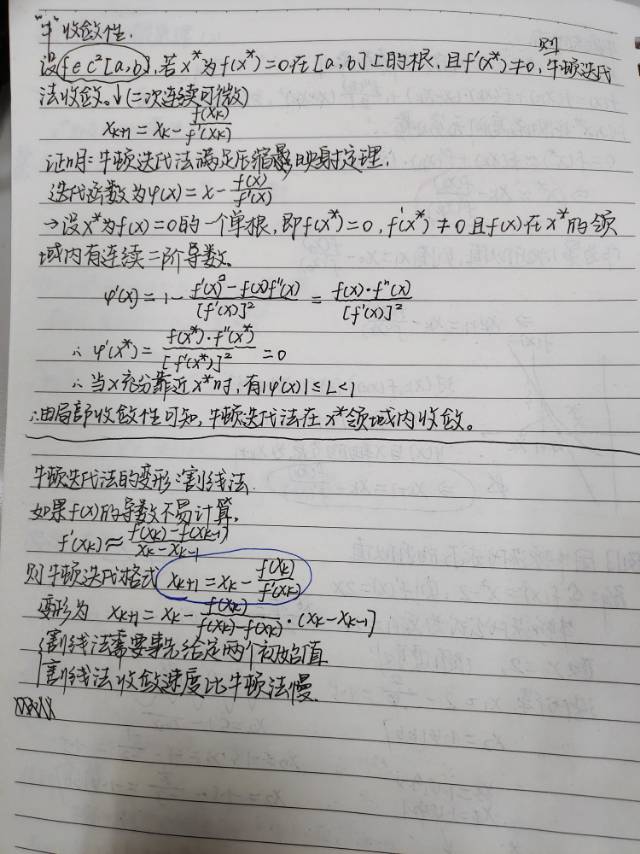 "牛"收敛性.
设f∈C²[a,b],若x*为f(x*)=0在[a,b]上的根,且f'(x*)≠0,则牛顿迭代
法收敛。↓(二次连续可微)
xk+1=xk-f(xk)/f'(xk)
证明:牛顿迭代法满足压缩映射定理.
迭代函数为φ(x)=x-f(x)/f'(x)
→设x*为f(x)=0的一个单根,即f(x*)=0,f'(x*)≠0且f(x)在x*的领
域内有连续二阶导数.
φ'(x)=1-f'(x)²-f(x)f''(x)/[f'(x)]²=f(x)·f''(x)/[f'(x)]²
∴φ'(x*)=f(x*)·f''(x*)/[f'(x*)]²=0
∴当x充分靠近x*时,有|φ'(x)|≤L<1
∴由局部收敛性可知,牛顿迭代法在x*领域内收敛。
牛顿迭代法的变形:割线法.
如果f(x)的导数不易计算,
f'(xk)≈f(xk)-f(xk-1)/xk-xk-1
则牛顿迭代格式xk+1=xk-f(xk)/f'(xk)
变形为 xk+1=xk-f(xk)/f(xk)-f(xk)·(xk-xk-1)
割线法需要事先给定两个初始值
割线法收敛速度比牛顿法慢.